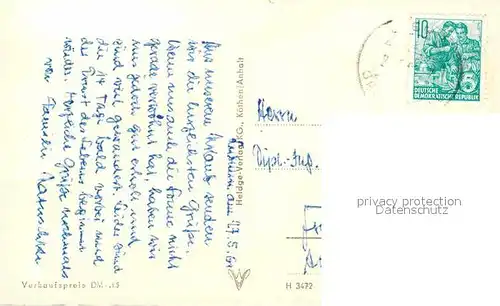 Aus unserem Urlaub senden
wir die herzlichsten Grüße.
Wenn uns auch die Sonne nicht
gerade verwöhnt hat, haben wir
uns jedoch gut erholt und
sind viel gewandert. Leider sind
die 14 Tage bald vorbei und
der Ernst des Lebens beginnt
wieder. Herzliche Grüße nochmals
von Familie
den 17.5.61
Heldge-Verlag KG., Köthen/Anhalt
Verkaufspreis DM -,15
10
5
DEUTSCHE
DEMOKRATISCHE REPUBLIK
Herrn
Dipl.-Ing.
privacy protection
Datenschutz
H 3472